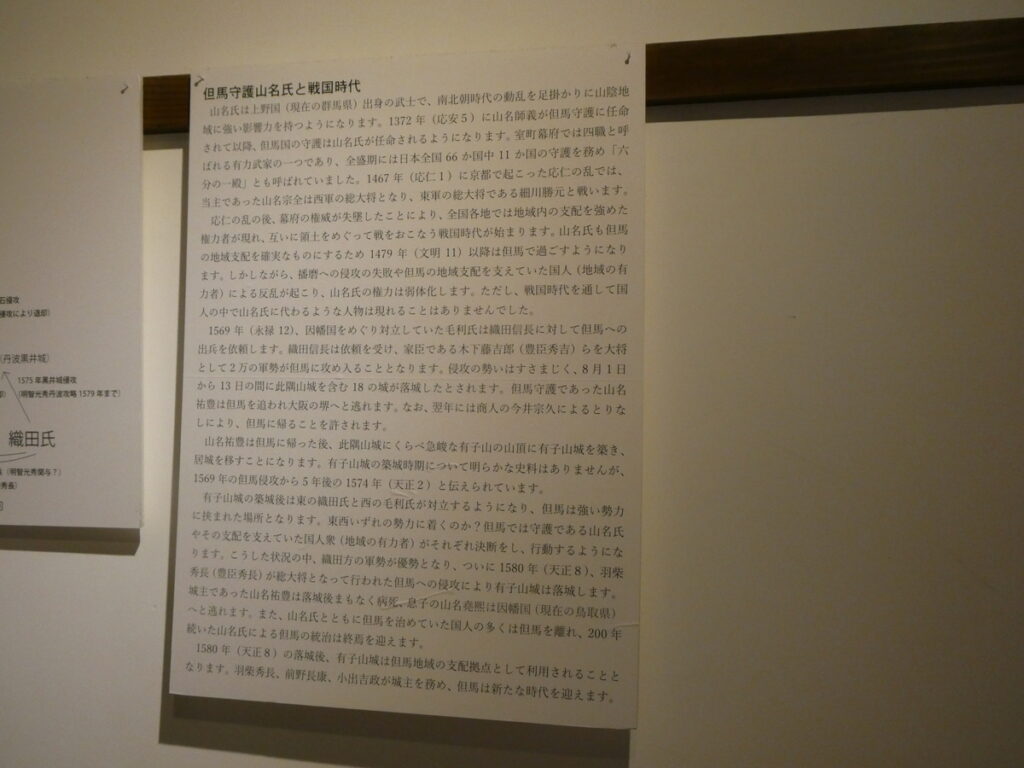 但馬守護山名氏と戦国時代
山名氏は上野国（現在の群馬県）出身の武士で、南北朝時代の動乱を足掛かりに山陰地
域に強い影響力を持つようになります。1372 年（応安５）に山名師義が但馬守護に任命
されて以降、但馬国の守護は山名氏が任命されるようになります。室町幕府では四職と呼
ばれる有力武家の一つであり、全盛期には日本全国 66 か国中 11 か国の守護を務め「六
分の一殿」とも呼ばれていました。1467 年（応仁１）に京都で起こった応仁の乱では、
当主であった山名宗全は西軍の総大将となり、東軍の総大将である細川勝元と戦います。
応仁の乱の後、幕府の権威が失墜したことにより、全国各地では地域内の支配を強めた
権力者が現れ、互いに領土をめぐって戦をおこなう戦国時代が始まります。山名氏も但馬
の地域支配を確実なものにするため 1479 年（文明 11）以降は但馬で過ごすようになり
ます。しかしながら、播磨への侵攻の失敗や但馬の地域支配を支えていた国人（地域の有
力者）による反乱が起こり、山名氏の権力は弱体化します。ただし、戦国時代を通して国
人の中で山名氏に代わるような人物は現れることはありませんでした。
1569 年（永禄 12）、因幡国をめぐり対立していた毛利氏は織田信長に対して但馬への
出兵を依頼します。織田信長は依頼を受け、家臣である木下藤吉郎（豊臣秀吉）らを大将
として２万の軍勢が但馬に攻め入ることとなります。侵攻の勢いはすさまじく、８月１日
から 13 日の間に此隅山城を含む 18 の城が落城したとされます。但馬守護であった山名
祐豊は但馬を追われ大阪の堺へと逃れます。なお、翌年には商人の今井宗久によるとりな
しにより、但馬に帰ることを許されます。
山名祐豊は但馬に帰った後、此隅山城にくらべ急峻な有子山の山頂に有子山城を築き、
居城を移すことになります。有子山城の築城時期について明らかな史料はありませんが、
1569 年の但馬侵攻から５年後の 1574 年（天正２）と伝えられています。
有子山城の築城後は東の織田氏と西の毛利氏が対立するようになり、但馬は強い勢力
に挟まれた場所となります。東西いずれの勢力に着くのか？但馬では守護である山名氏
やその支配を支えていた国人衆（地域の有力者）がそれぞれ決断をし、行動するようにな
ります。こうした状況の中、織田方の軍勢が優勢となり、ついに 1580 年（天正８）、羽柴
秀長（豊臣秀長）が総大将となって行われた但馬への侵攻により有子山城は落城します。
城主であった山名祐豊は落城後まもなく病死、息子の山名堯熙は因幡国（現在の鳥取県）
へと逃れます。また、山名氏とともに但馬を治めていた国人の多くは但馬を離れ、200 年
続いた山名氏による但馬の統治は終焉を迎えます。
1580 年（天正８）の落城後、有子山城は但馬地域の支配拠点として利用されることと
なります。羽柴秀長、前野長康、小出吉政が城主を務め、但馬は新たな時代を迎えます。
侵攻により退却）
（丹波黒井城）
1575 年黒井城侵攻
（明智光秀丹波攻略 1579 年まで）
織田氏
（明智光秀関与？）
秀長）